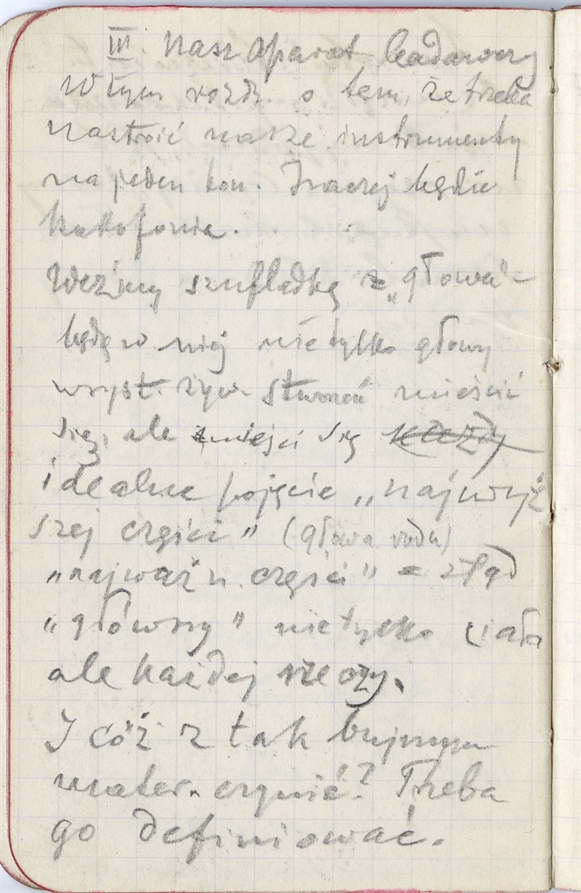 III. Nasz aparat badawczy
W tym rozdz. o tem, że trzeba
nastroić nasze instrumenty
na jeden ton. Inaczej będzie
kakofonia.
Weźmy szufladkę z „głową" –
będą w niej nie tylko głowy
wszyst. żyw. stworzeń mieścić
się, ale mieści się
idealne pojęcie „najwyż
szej części" (głowa rodu)
„najważn. części" = stąd
„główny" nie tylko ciała
ale każdej rzeczy.
I cóż z tak bujnym
mater. czynić? Trzeba
go definiować.